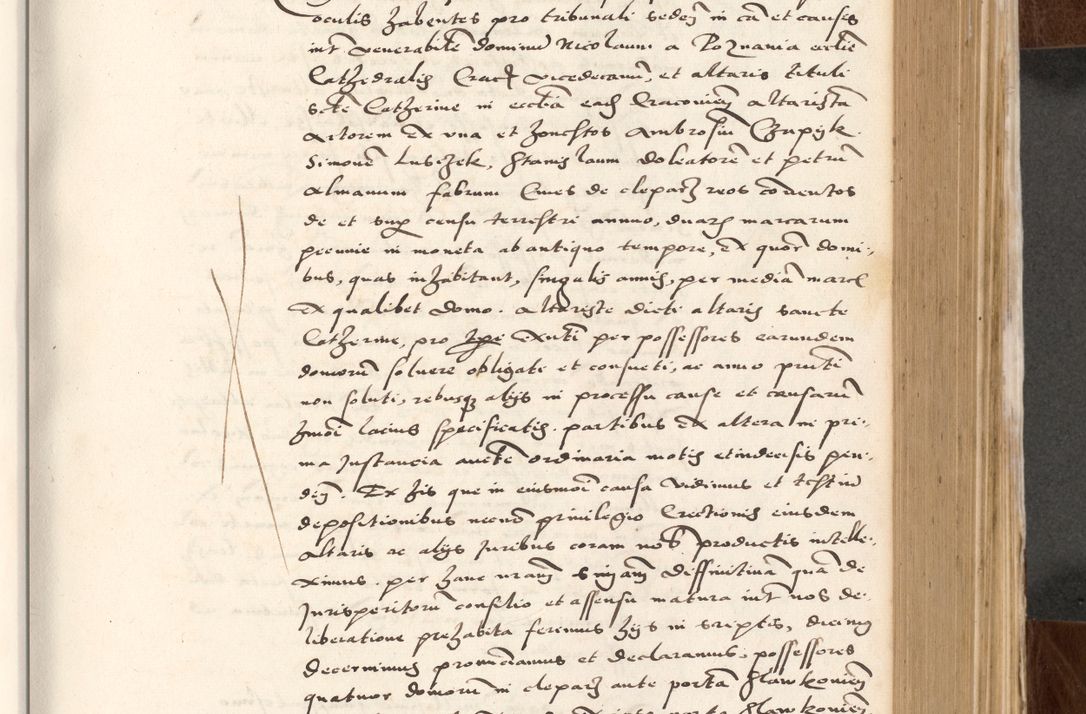 oculis habentes pro tribunali seden in ca et causis
int venerabilē dominū Nicolaum a Poznania ecclie
Cathedralis Crac vicedecanū, et altaris tituli
scte Catherine in ecclia eads Cracovien altaristā
actorem ex vna et honestos Ambrosiū Czapijk
Simonē Lusczek, Stanislaum doleatorē et petrū
Almanum fabrum Cives de clepars reos conventos
de et sup censu terrestri annuo, duars marcarum
pecunie in moneta ab antiquo tempore, ex quor domi-
bus, quas inhabitant, singulis annis, per mediā marc
ex qualibet domo. altariste dicti altaris sancte
Catherine, pro tpe exnti per possessores earundem
domorum solvere obligati et consueti, ac anno pnti
non soluti, rebusq alijs in processu cause et causarū
hmōi lacius specificatis. partibus ex altera in pri-
ma Instancia aucte ordinaria motis et indecisis pen-
den. Ex his que in eiusmōi causa vidimus et testiū
depositionibus necnō privilegio Erectionis eiusdem
Altaris ac alijs Iuribus coram nob productis intelle-
ximus. per hanc nram sniam deffinitivā quā de
Iurisperitorū consilio et assensu matura int nos de-
liberatione prehabita ferimus hijs in scriptis, dicim9
decernimus pronūciamus et declaramus. possessores
quatuor domorū in clepars ante portā Slawkovien